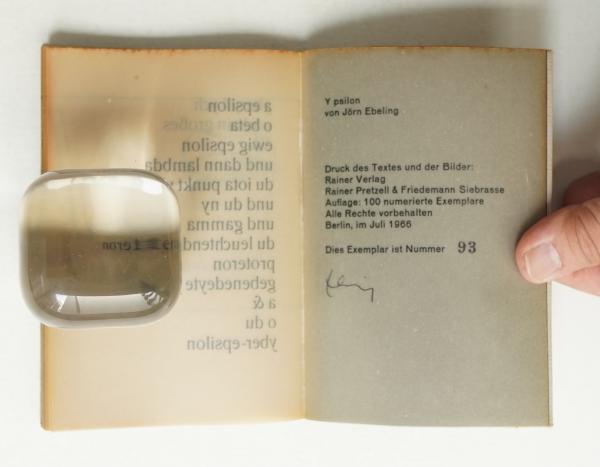 a epsilon
o beta
ewig epsilon
und dann lambda
du iota punkt
und du ny
und gamma
du leuchtend
proteron
gebenedeyte
a &
o du
yber-epsilon
Y psilon
von Jörn Ebeling
Druck des Textes und der Bilder:
Rainer Verlag
Rainer Pretzell & Friedemann Siebrasse
Auflage: 100 numerierte Exemplare
Alle Rechte vorbehalten
Berlin, im Juli 1966
Dies Exemplar ist Nummer 93